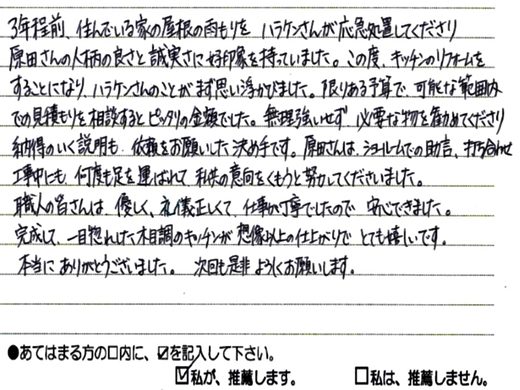 3年程前、住んでいる家の屋根の雨もりを ハラケンさんが応急処置してくださり
原田さんの人柄の良さと誠実さに好印象を持っていました。この度、キッチンのリフォームを
することになり、ハラケンさんのことがまず思い浮かびました。限りある予算で、可能な範囲内
での見積もりを相談するとピッタリの金額でした。無理強いせず 必要な物を勧めてくださり
納得のいく説明も 依頼をお願いした決め手です。原田さんは、ショールームでの助言、打ち合わせ
工事中にも 何度も足を運ばれて 私供の意向をくもうと努力してくださいました。
職人の皆さんは、優しく、礼儀正しくて、仕事が丁寧でしたので 安心できました。
完成して、一目惚れした木目調のキッチンが 想像以上の仕上がりで とても嬉しいです。
本当に ありがとうございました。 次回も是非 よろしくお願いします。
●あてはまる方の□内に、☑を記入して下さい。
☑私が、推薦します。 □私は、推薦しません。